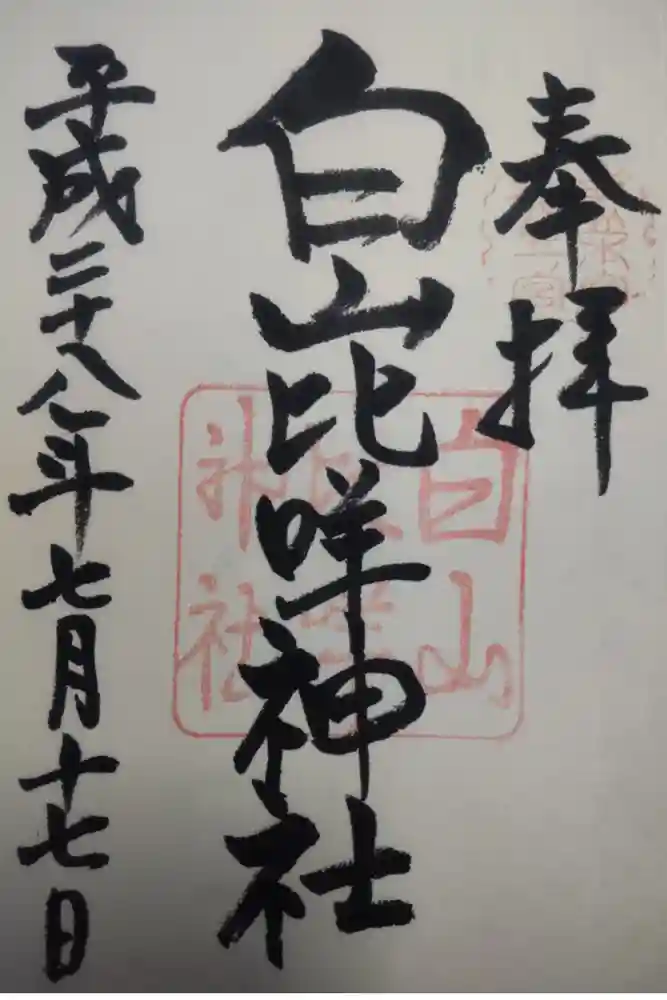 奉拝
白山比咩神社
平成二十八年七月十七日
白山
比咩
神社